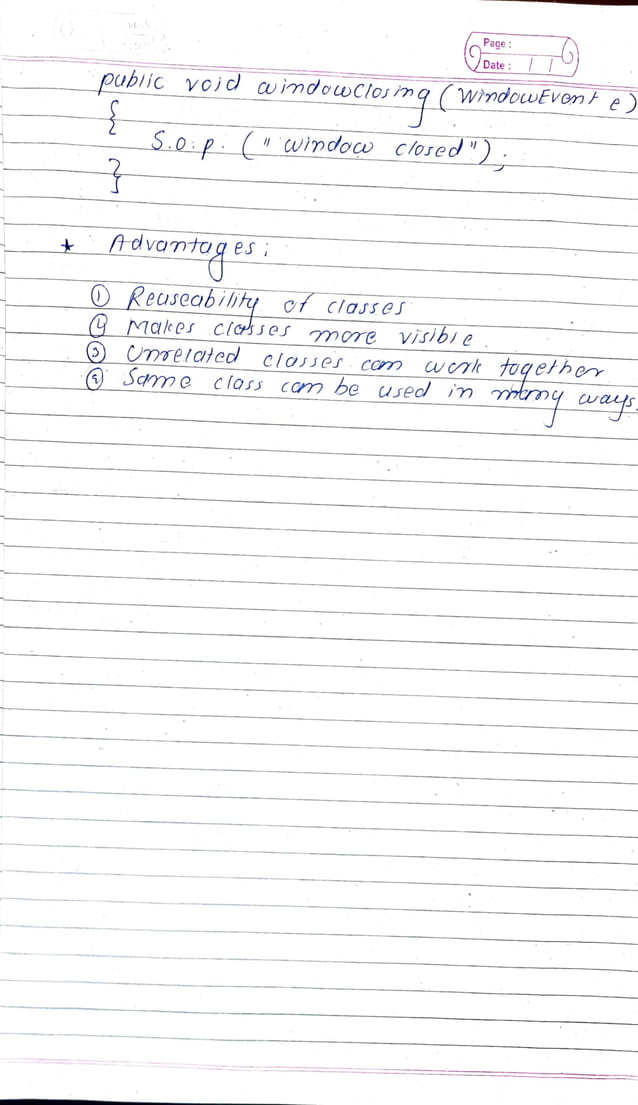 Page :
Date : / /
public void windowClosing (WindowEvent e)
{
S.o.p. (" window closed");
}
★ Advantages :
① Reuseability of classes
④ Makes classes more visible.
③ Unrelated classes can work together
② Same class can be used in many ways.